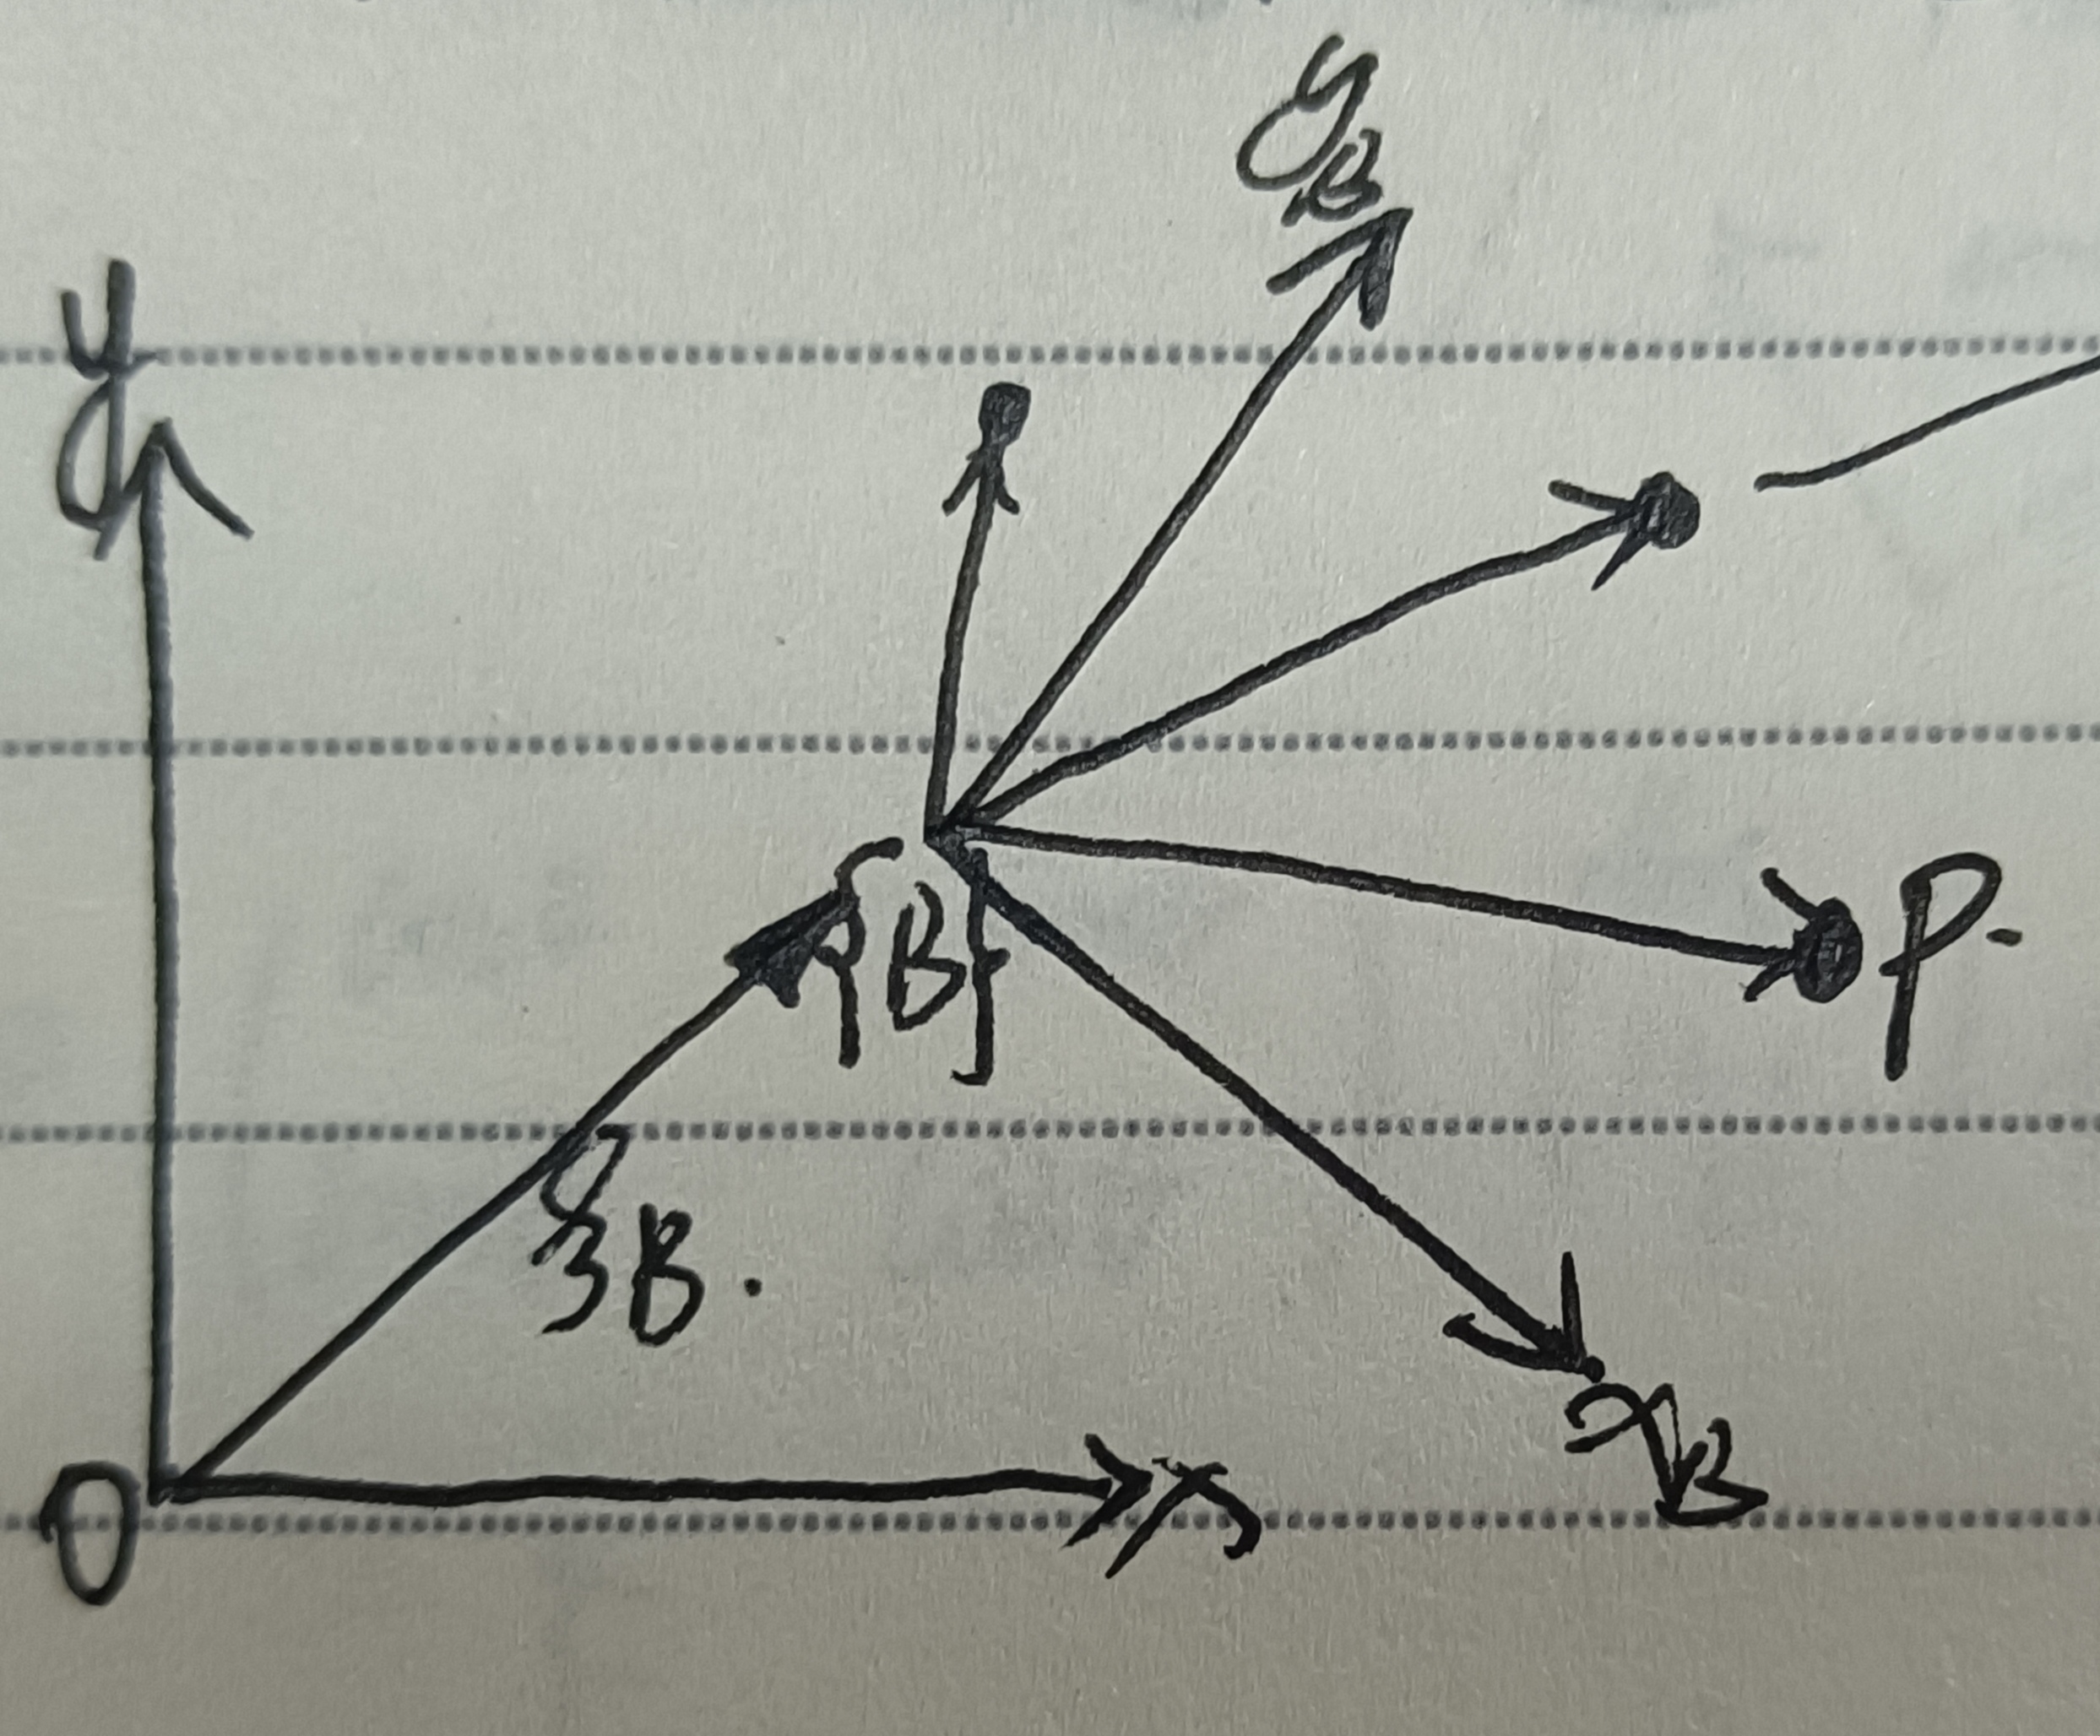 y_B
y
{B}
P.
ξ_B.
x_B
O
x